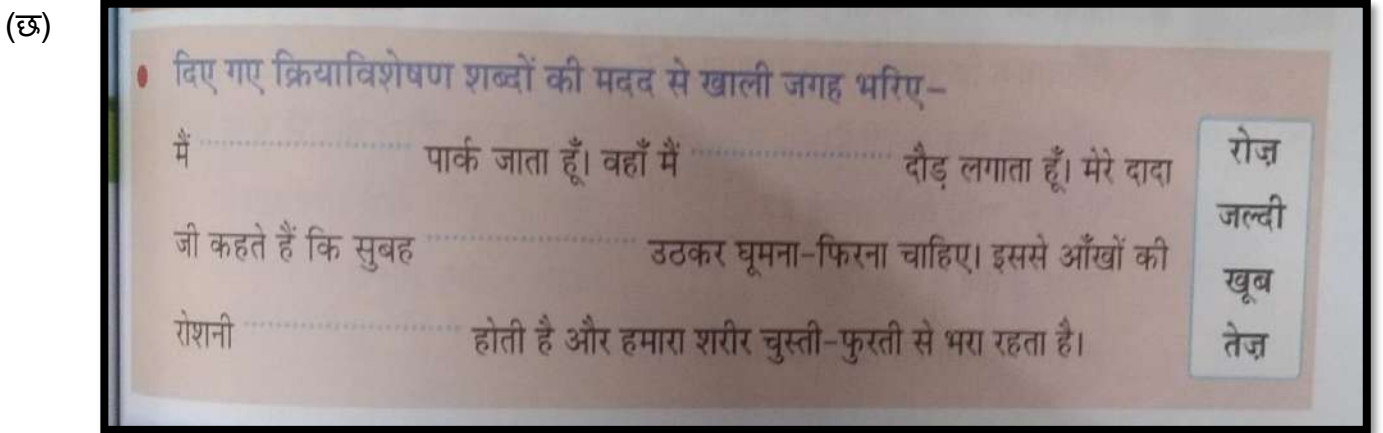 (छ)
• दिए गए क्रियाविशेषण शब्दों की मदद से खाली जगह भरिए–
मैं .................... पार्क जाता हूँ। वहाँ मैं .................... दौड़ लगाता हूँ। मेरे दादा
जी कहते हैं कि सुबह .................... उठकर घूमना-फिरना चाहिए। इससे आँखों की
रोशनी .................... होती है और हमारा शरीर चुस्ती-फुरती से भरा रहता है।
रोज़
जल्दी
खूब
तेज़